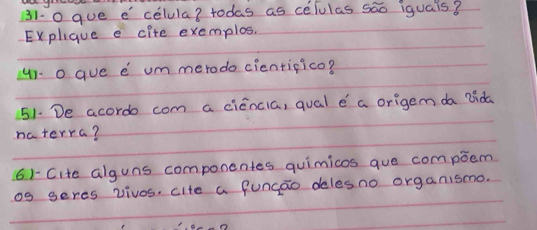 3)- O que é célula? todas as células são iguais?
Explique e cite exemplos.
4)- o que é um metodo cientifico?
5)- De acordo com a ciência, qual é a origem da vida
na terra?
6)- Cite alguns componentes quimicos que compõem
os seres vivos. cite a função deles no organismo.